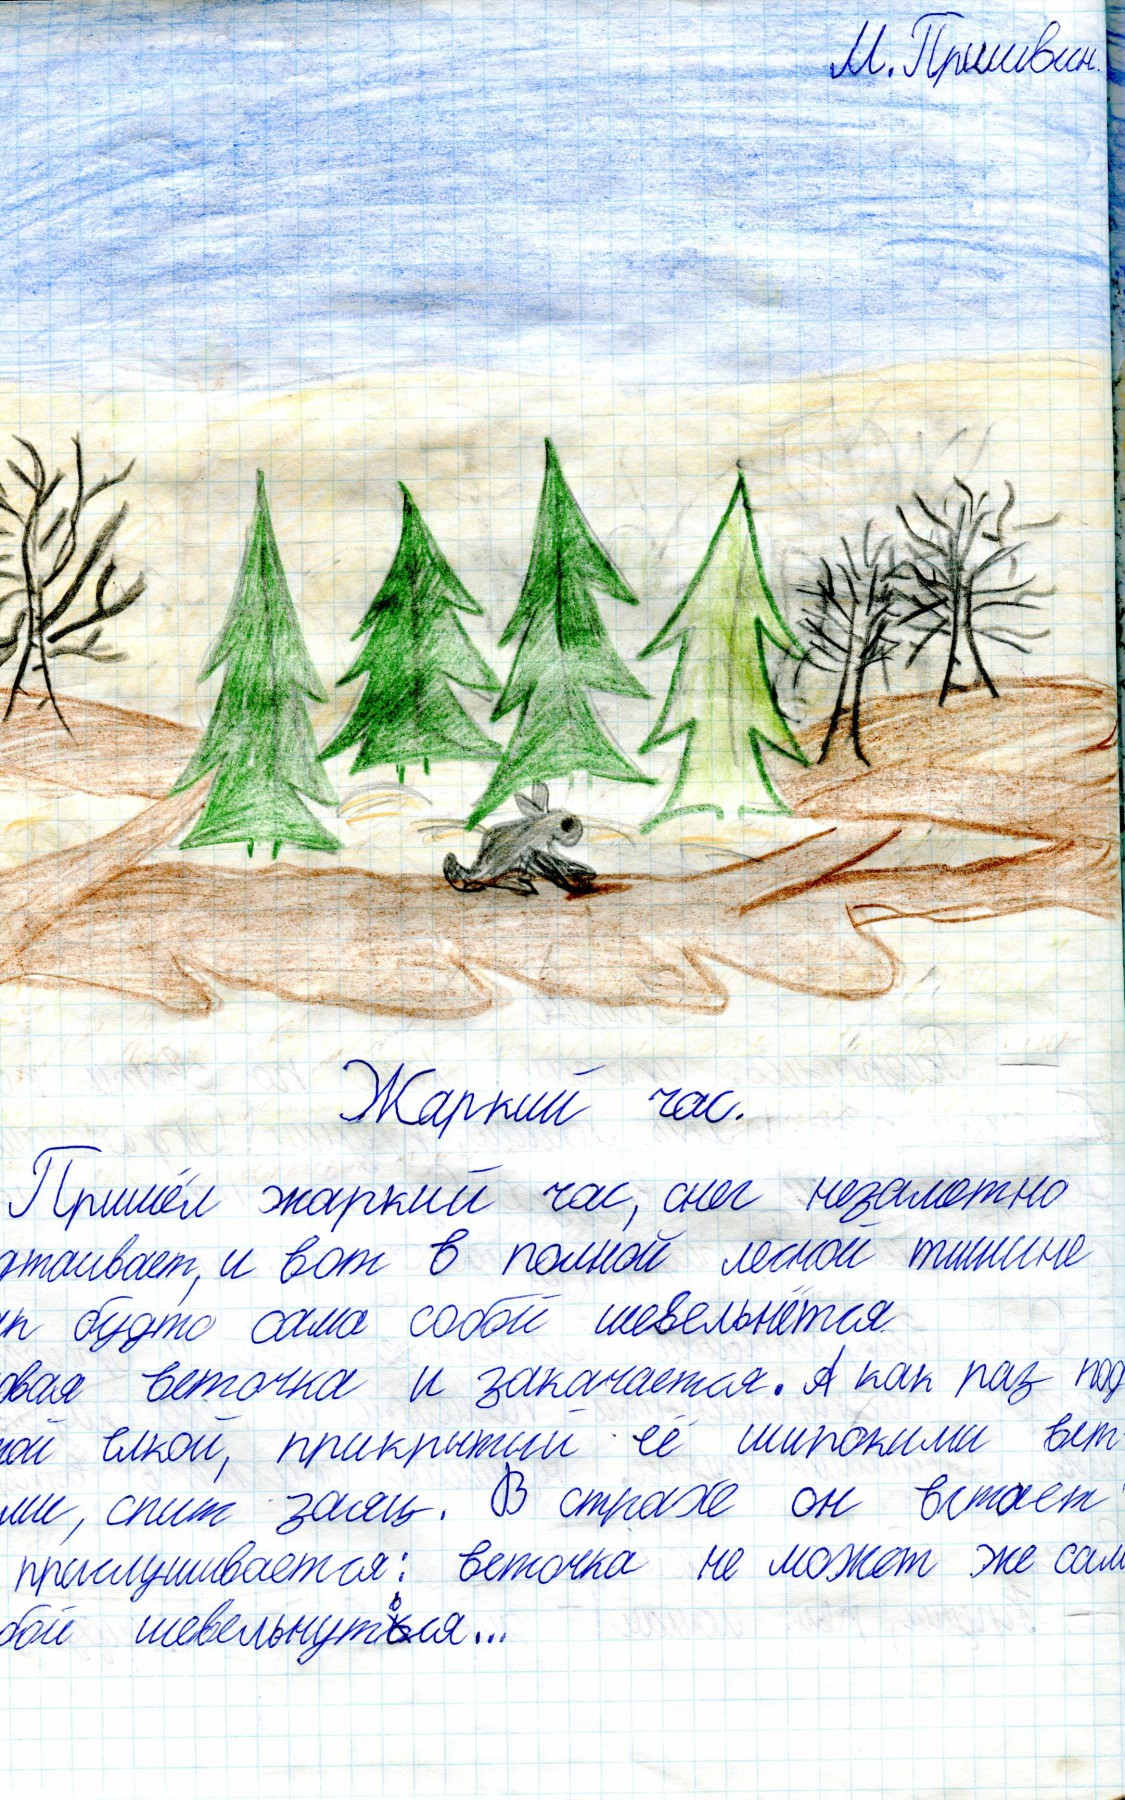 М. Пришвин.
Жаркий час.
Пришёл жаркий час, снег незаметно
дтаивает, и вот в полной лесной тишине
ак будто сама собой шевельнётся
овая веточка и закачается. А как раз под
той ёлкой, прикрытый её широкими вет-
ми, спит заяц. В страхе он встает
прислушивается: веточка не может же сам
обой шевельнуться...